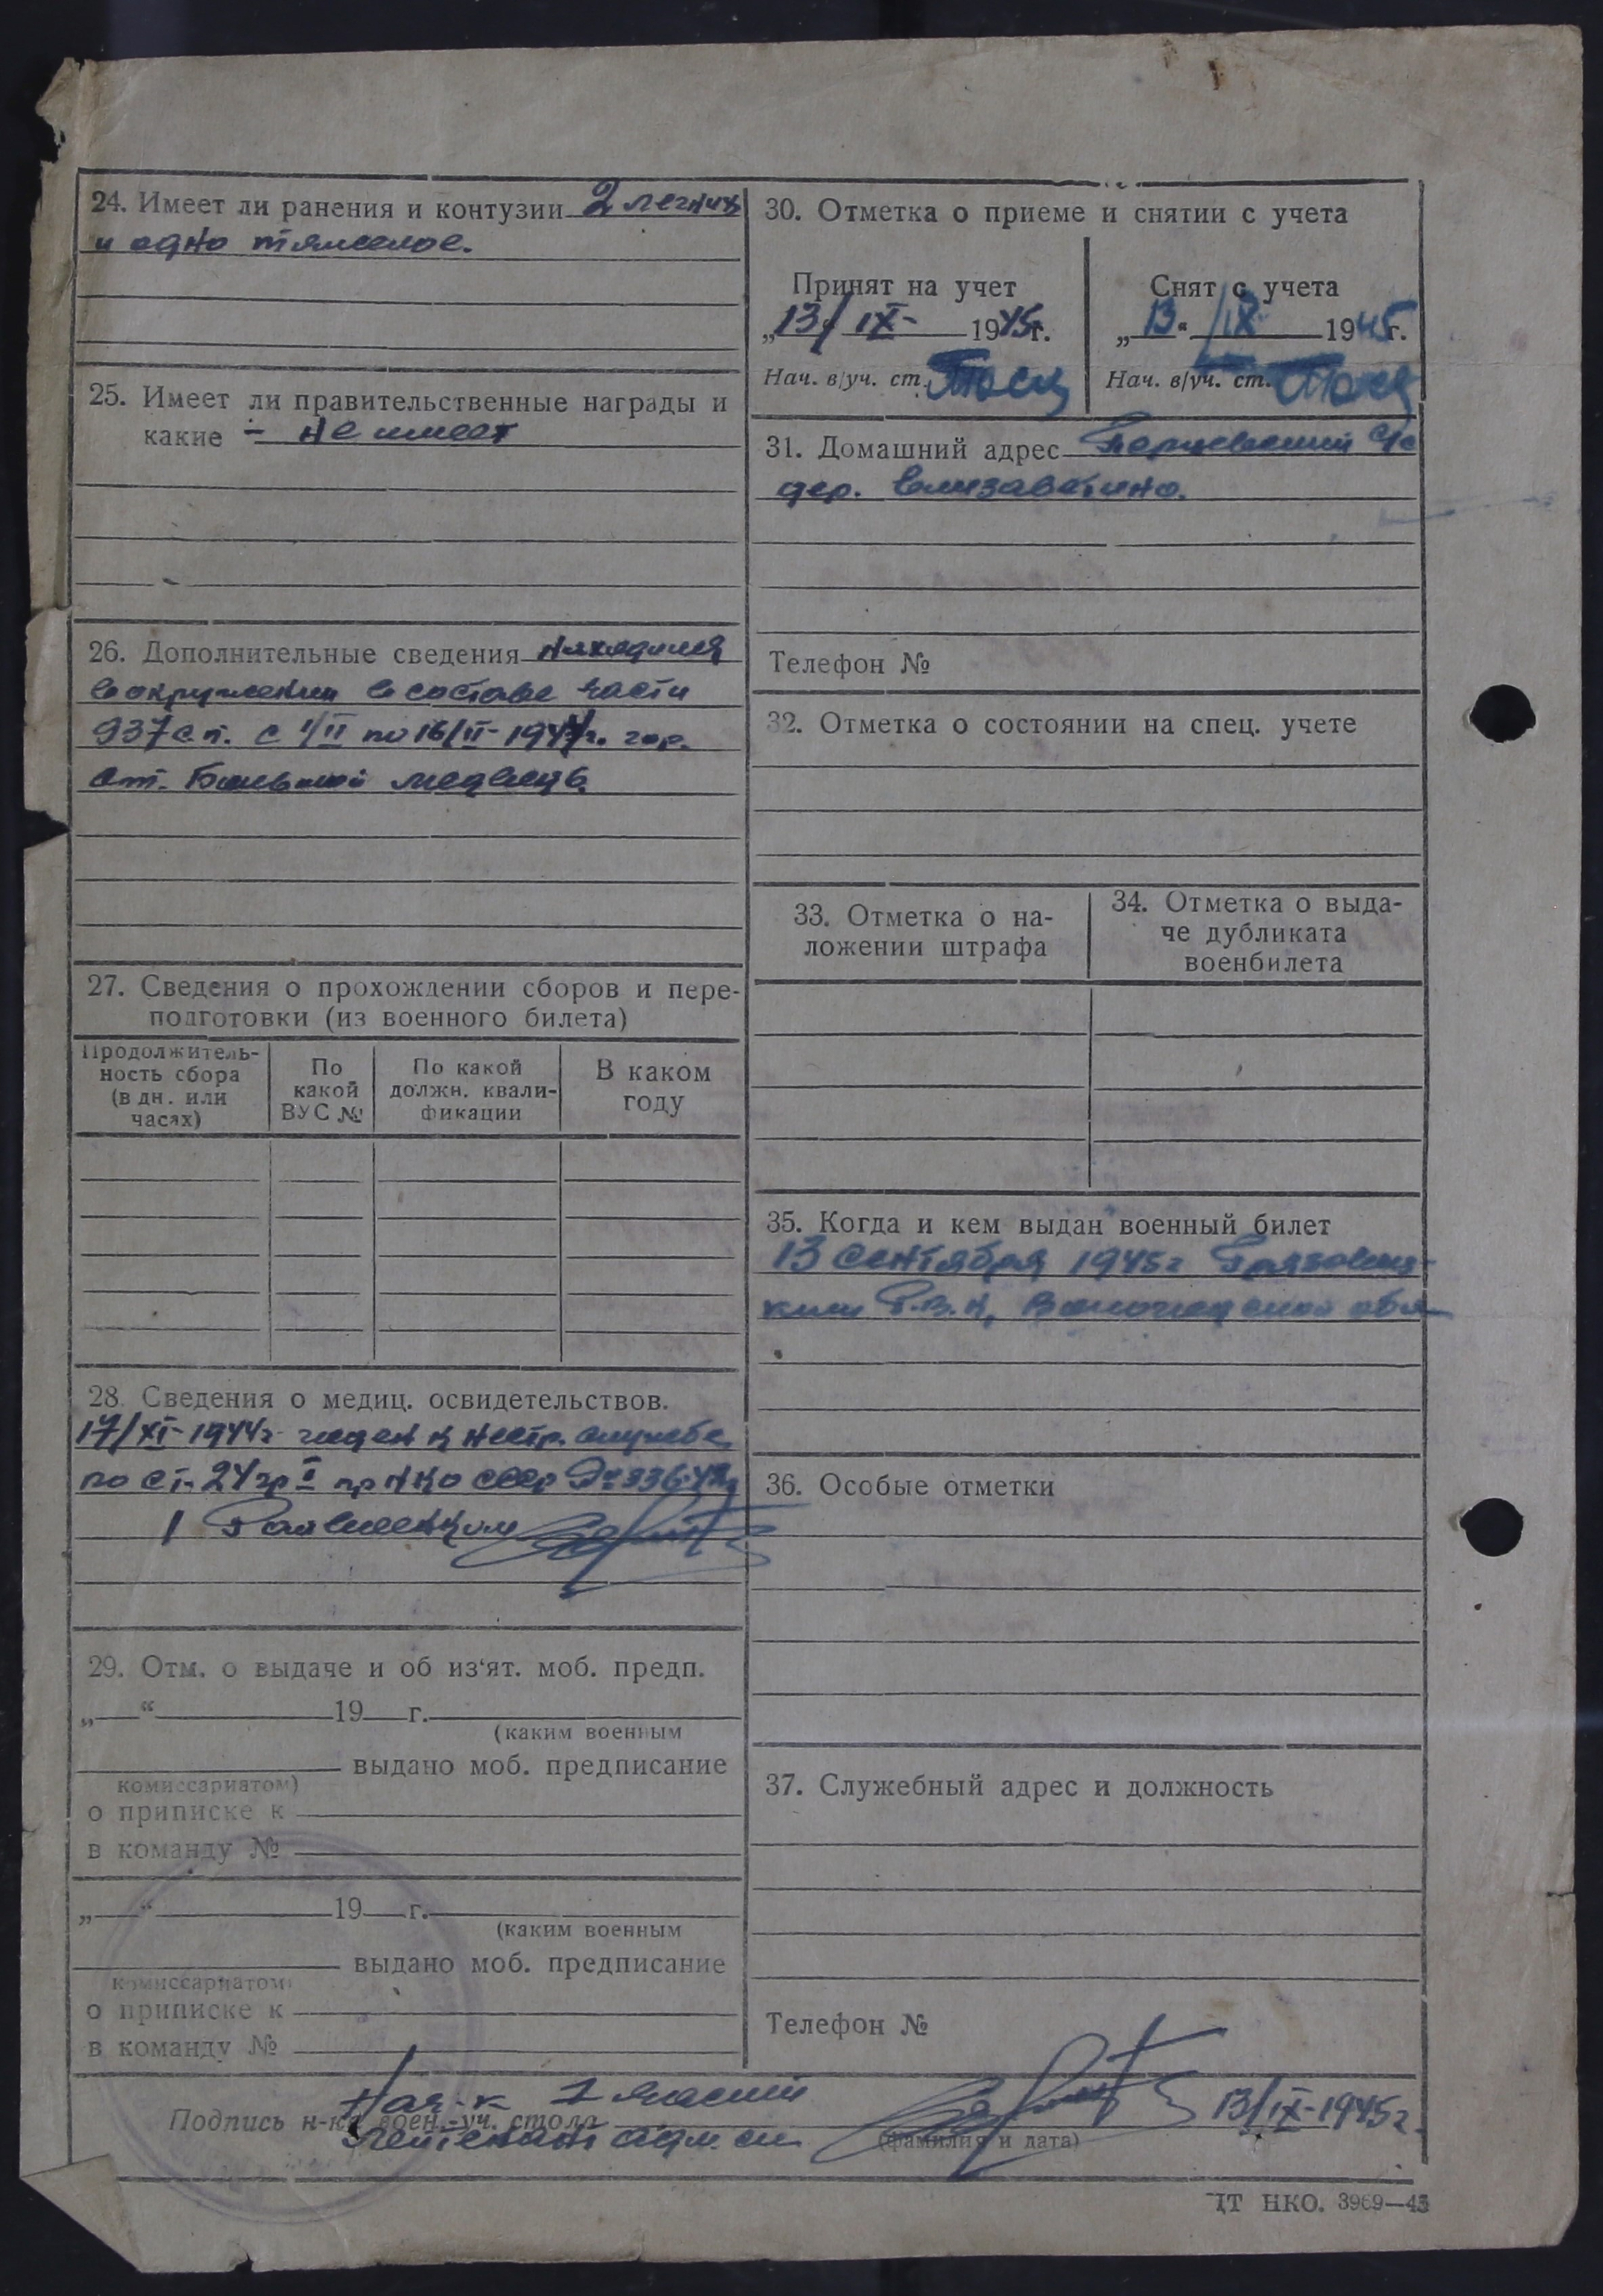 24. Имеет ли ранения и контузии 2 легких
и одно тяжелое.
25. Имеет ли правительственные награды и
какие - не имеет
26. Дополнительные сведения находился
в окружении в составе части
937 с.п. с 1/II по 16/II-1944г. гор.
ст. Большой медведь
27. Сведения о прохождении сборов и пере-
подготовки (из военного билета)
Продолжитель-
ность сбора
(в дн. или
часах)
По
какой
ВУС №
По какой
должн. квали-
фикации
В каком
году
28. Сведения о медиц. освидетельствов.
17/XI-1944г годен к нестр. службе
по ст. 24 гр I пр НКО СССР № 336-42г
Райвоенком
29. Отм. о выдаче и об из‘ят. моб. предп.
„ “ 19 г.
(каким военным
выдано моб. предписание
комиссариатом)
о приписке к
в команду №
„ “ 19 г.
(каким военным
выдано моб. предписание
комиссариатом)
о приписке к
в команду №
30. Отметка о приеме и снятии с учета
Принят на учет
„13/ IX- 1945г.
Нач. в/уч. ст.
Снят с учета
„13“ /IX 1945г.
Нач. в/уч. ст.
31. Домашний адрес Перцевский с/с
дер. Елизаветино.
Телефон №
32. Отметка о состоянии на спец. учете
33. Отметка о на-
ложении штрафа
34. Отметка о выда-
че дубликата
военбилета
35. Когда и кем выдан военный билет
13 сентября 1945г Грязовец-
ким Р.В.К, Вологодской обл
36. Особые отметки
37. Служебный адрес и должность
Телефон №
Нач-к 1 части
Подпись н-ка воен.-уч. стола
лейтенант адм. сл.
13/IX-1945г.
(фамилия и дата)
ЦТ НКО. 3969—43